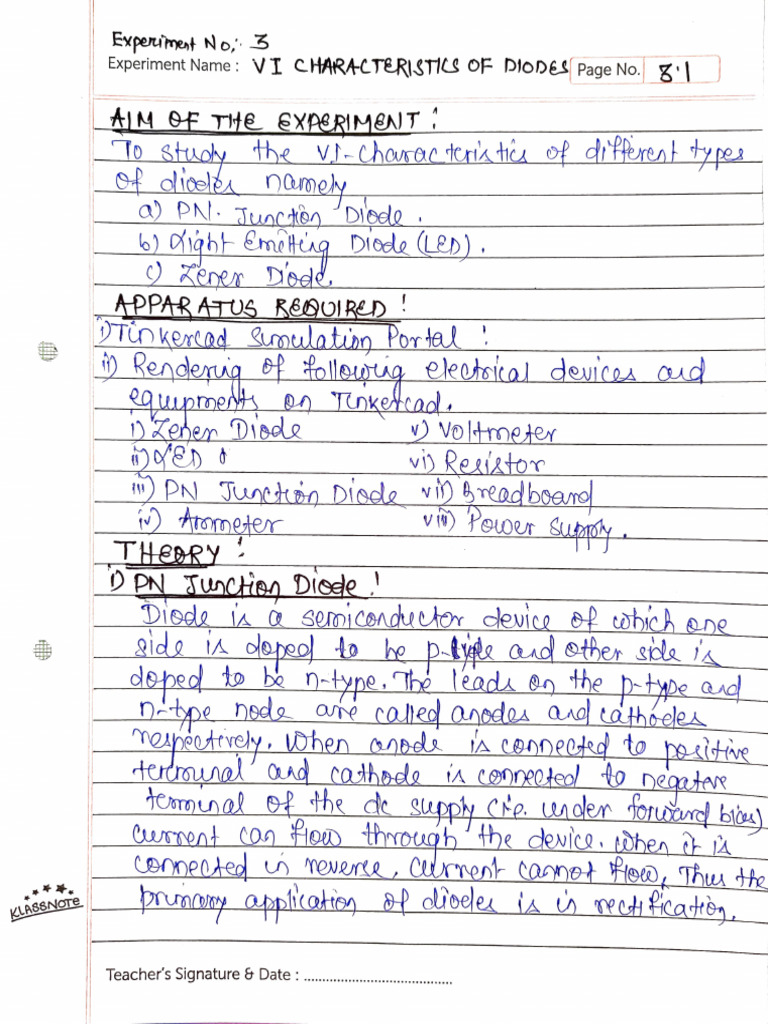 Experiment No,: 3
Experiment Name : VI CHARACTERISTICS OF DIODES Page No. 3.1
AIM OF THE EXPERIMENT :
To study the V.I-characteristics of different types
of diodes namely
a) PN. Junction Diode.
b) Light Emitting Diode (LED).
c) Zener Diode.
APPARATUS REQUIRED :
i) Tinkercad Simulation Portal :
ii) Rendering of following electrical devices and
equipments on Tinkercad.
i) Zener Diode v) Voltmeter
ii) LED vi) Resistor
iii) PN Junction Diode vii) Breadboard
iv) Ammeter viii) Power supply.
THEORY :
i) PN Junction Diode :
Diode is a semiconductor device of which one
side is doped to be p-type and other side is
doped to be n-type. The leads on the p-type and
n-type node are called anodes and cathodes
respectively. When anode is connected to positive
terminal and cathode is connected to negative
terminal of the dc supply (i.e. under forward bias)
current can flow through the device. When it is
connected in reverse, current cannot flow, Thus the
primary application of diodes is in rectification.
KLASSNOTE
Teacher's Signature & Date : ......................................